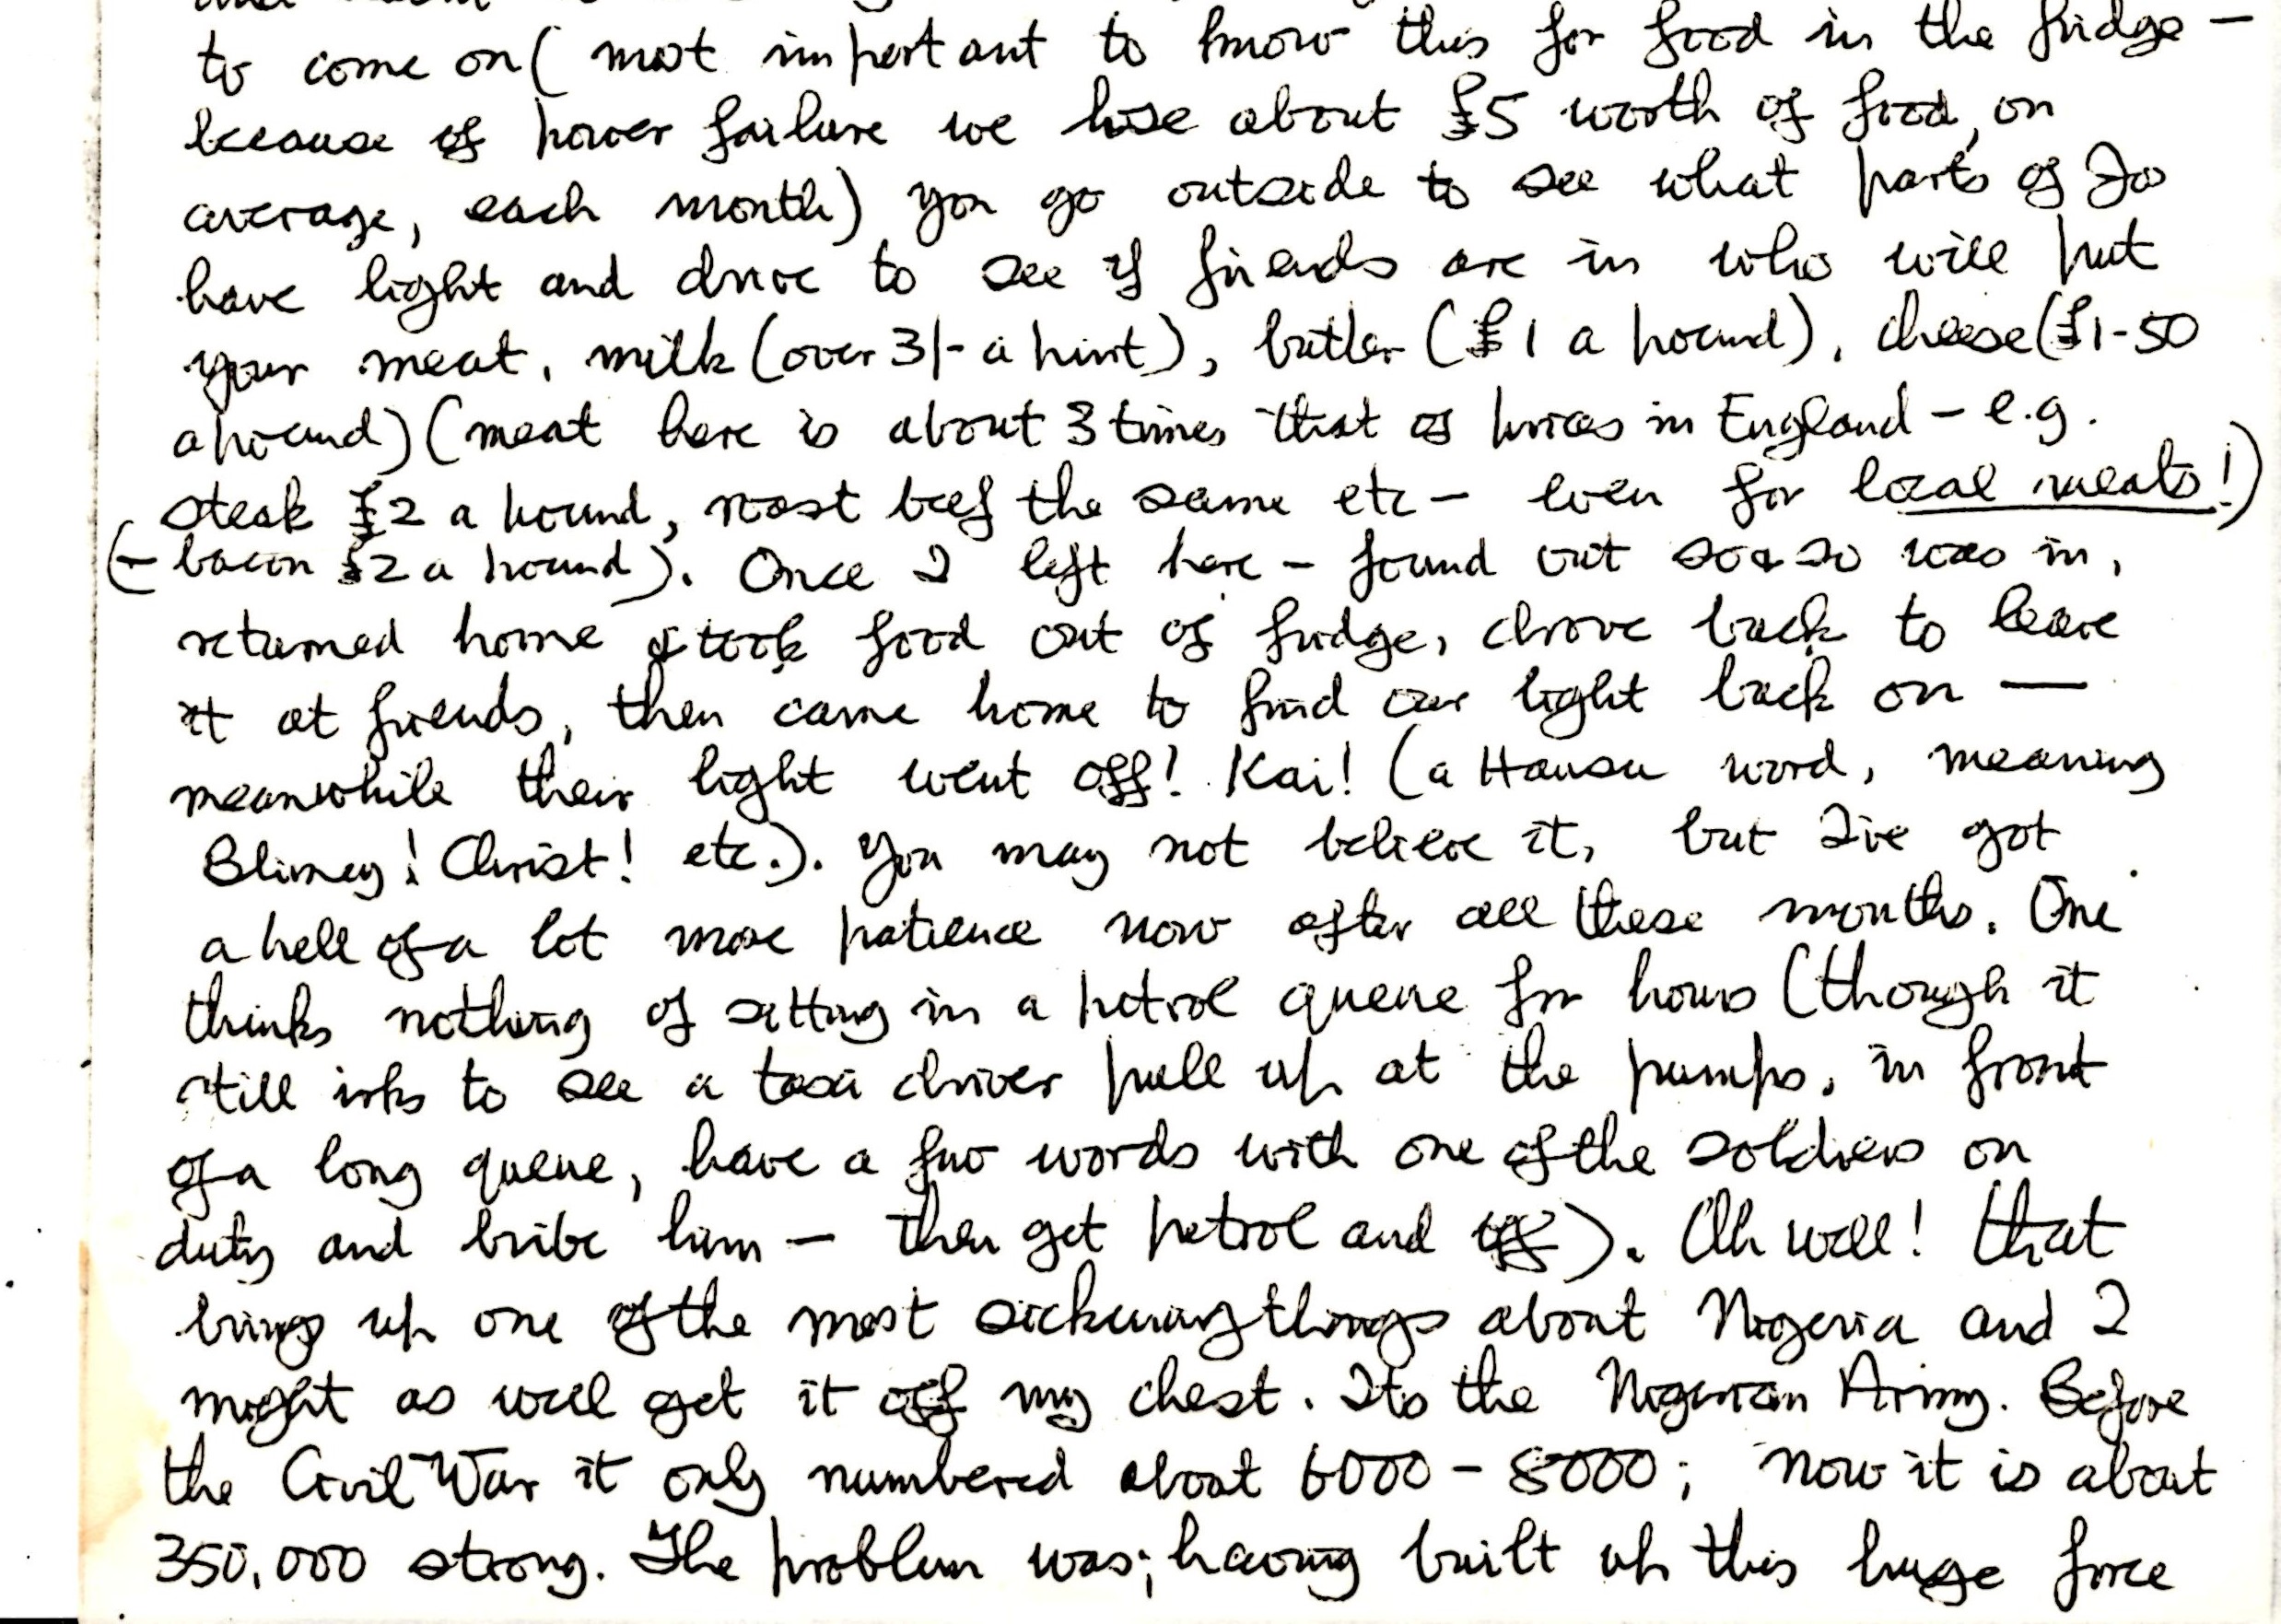 to come on (most important to know this for food in the fridge —
because of power failure we lose about £5 worth of food, on
average, each month) you go outside to see what parts of Jos
have light and drive to see if friends are in who will put
your meat, milk (over 3/- a pint), butter (£1 a pound), cheese (£1-50
a pound) (meat here is about 3 times that of prices in England – e.g.
steak £2 a pound, roast beef the same etc – even for local meats!)
(– bacon £2 a pound). Once I left here – found out so & so was in,
returned home & took food out of fridge, drove back to leave
it at friends, then came home to find our light back on —
meanwhile their light went off! Kai! (a Hausa word, meaning
Blimey! Christ! etc.). You may not believe it, but I've got
a hell of a lot more patience now after all these months. One
thinks nothing of sitting in a petrol queue for hours (though it
still irks to see a taxi driver pull up at the pumps, in front
of a long queue, have a few words with one of the soldiers on
duty and bribe him – then get petrol and off). Oh well! That
brings up one of the most sickening things about Nigeria and I
might as well get it off my chest. Its the Nigerian Army. Before
the Civil War it only numbered about 6000 – 8000; now it is about
350,000 strong. The problem was; having built up this huge force